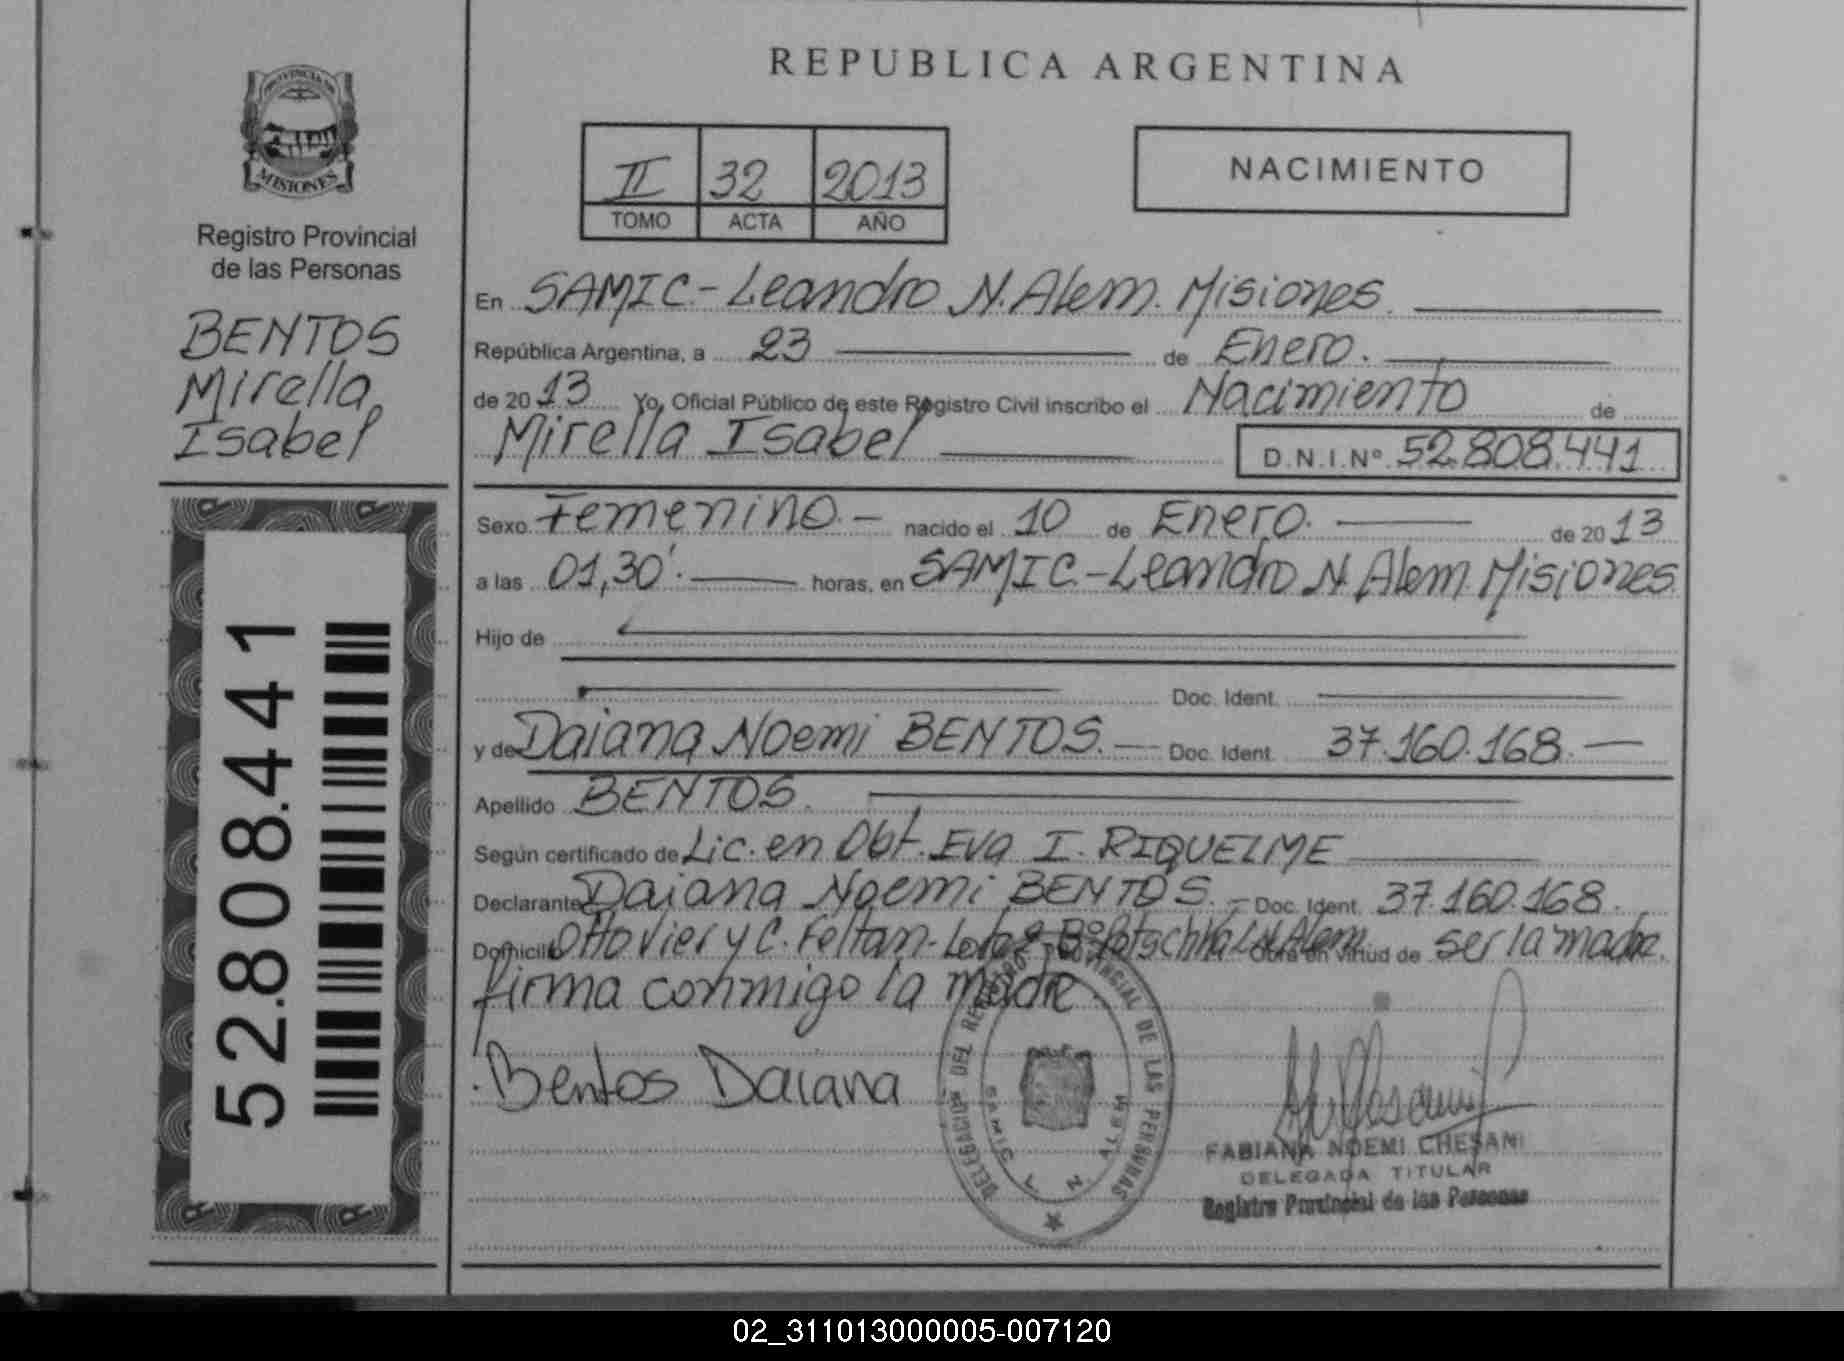 REPUBLICA ARGENTINA
PROVINCIA DE
MISIONES
Registro Provincial
de las Personas
BENTOS
Mirella
Isabel
52.808.441
II 32 2013
TOMO ACTA AÑO
NACIMIENTO
En SAMIC-Leandro N. Alem. Misiones
República Argentina, a 23 de Enero.
de 2013 Yo, Oficial Público de este Registro Civil inscribo el Nacimiento de
Mirella Isabel D.N.I.Nº 52.808.441
Sexo Femenino.- nacido el 10 de Enero. de 2013
a las 01,30'. horas, en SAMIC.-Leandro N. Alem. Misiones
Hijo de
Doc. Ident.
y de Daiana Noemi BENTOS.- Doc. Ident. 37.160.168.-
Apellido BENTOS.
Según certificado de Lic. en Obt. Eva I. RIQUELME
Declarante Daiana Noemi BENTOS.- Doc. Ident. 37.160.168.
Domicilio Otto Vier y C. Feltan- Obra en virtud de ser la madre.
firma conmigo la madre.
Bentos Daiana
DELEGACION DEL REGISTRO PROVINCIAL DE LAS PERSONAS
SAMIC L. N. ALEM
FABIANA NOEMI CHESANI
DELEGADA TITULAR
Registro Provincial de las Personas
02_311013000005-007120